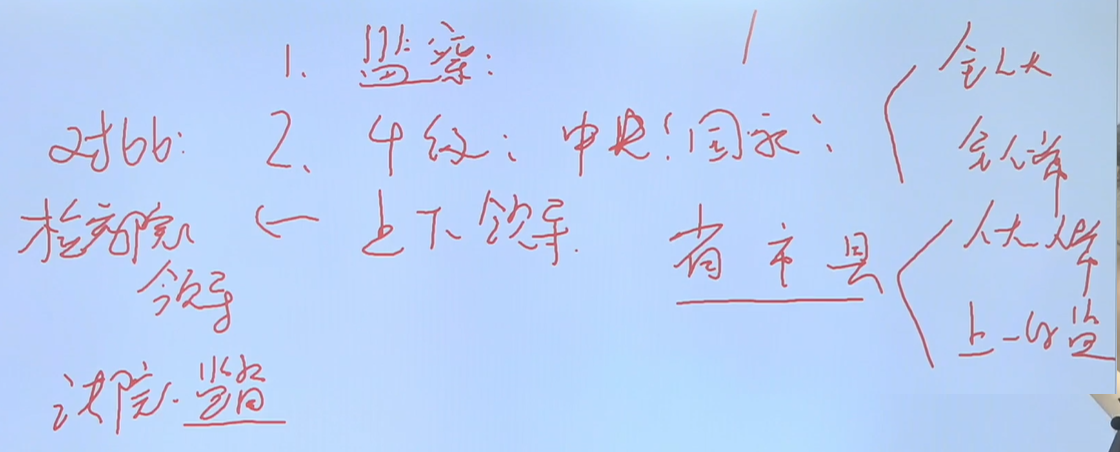 1、监察：
全人大
对比： 2、4级：中央！国家：
全人常
检察院 ← 上下领导.
领导
省 市 县
人大 人常
上一级监
法院.监督